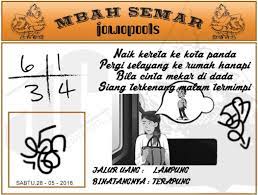 MBAH SEMAR
jowopools
Naik kereta ke kota panda
Pergi selayang ke rumah hanapi
Bila cinta mekar di dada
Siang terkenang malam termimpi
6 1
3 4
JALUR UANG : LAMPUNG
BINATANGNYA : TERAPUNG
SABTU, 28 - 05 - 2016